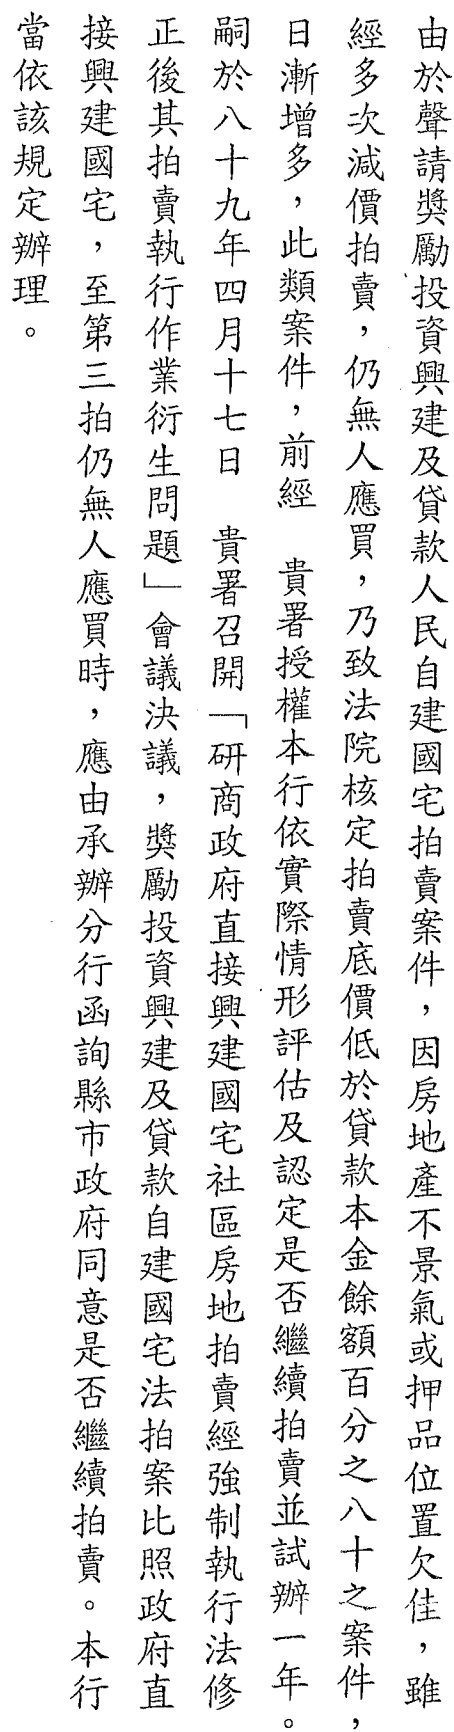 由於聲請獎勵投資興建及貸款人民自建國宅拍賣案件，因房地產不景氣或押品位置欠佳，雖
經多次減價拍賣，仍無人應買，乃致法院核定拍賣底價低於貸款本金餘額百分之八十之案件，
日漸增多，此類案件，前經　貴署授權本行依實際情形評估及認定是否繼續拍賣並試辦一年。
嗣於八十九年四月十七日　貴署召開「研商政府直接興建國宅社區房地拍賣經強制執行法修
正後其拍賣執行作業衍生問題」會議決議，獎勵投資興建及貸款自建國宅法拍案比照政府直
接興建國宅，至第三拍仍無人應買時，應由承辦分行函詢縣市政府同意是否繼續拍賣。本行
當依該規定辦理。